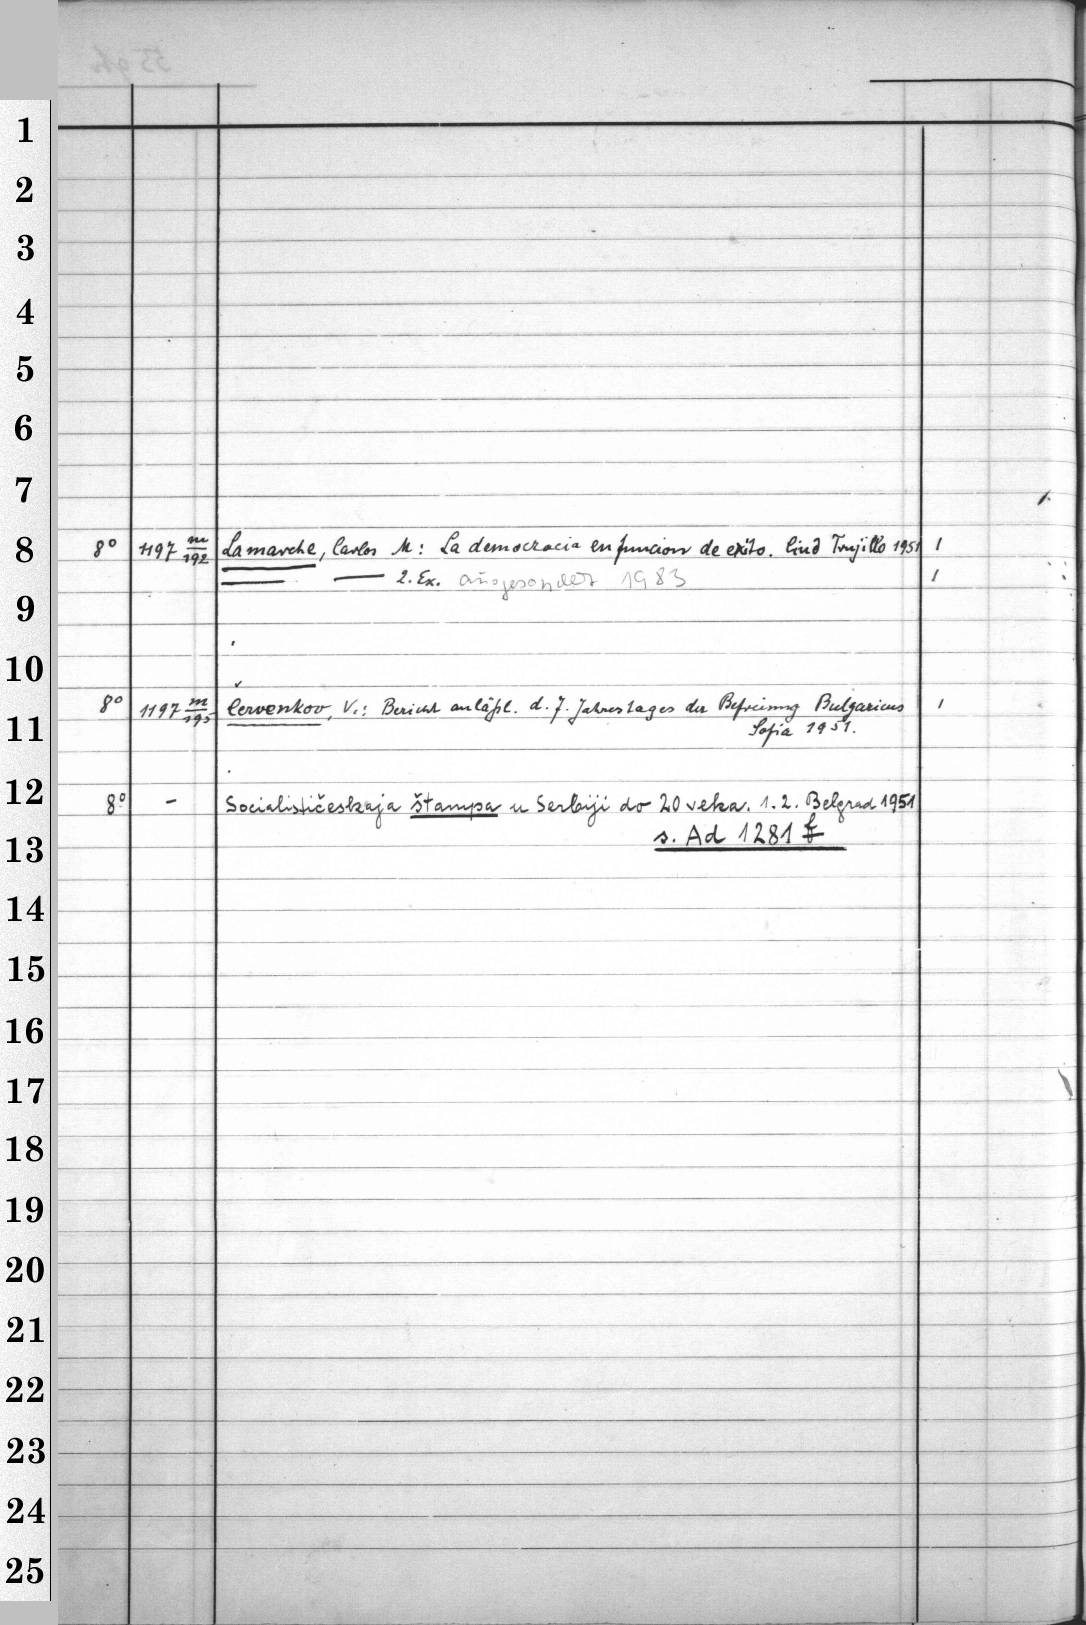 1
2
3
4
5
6
7
8 8° 1197 m/192 Lamarche, Carlos M: La democracia en funcion de exito. Ciud Trujillo 1951 1
— — 2. Ex. ausgesondert 1983 1
9
10
8° 1197 m/195 Červenkov, V.: Bericht anläßl. d. 7. Jahrestages der Befreiung Bulgariens 1
11 Sofia 1951.
12 8° - Socialističeskaja štampa u Serbiji do 20 veka. 1.2. Belgrad 1951
13 s. Ad 1281 f
14
15
16
17
18
19
20
21
22
23
24
25